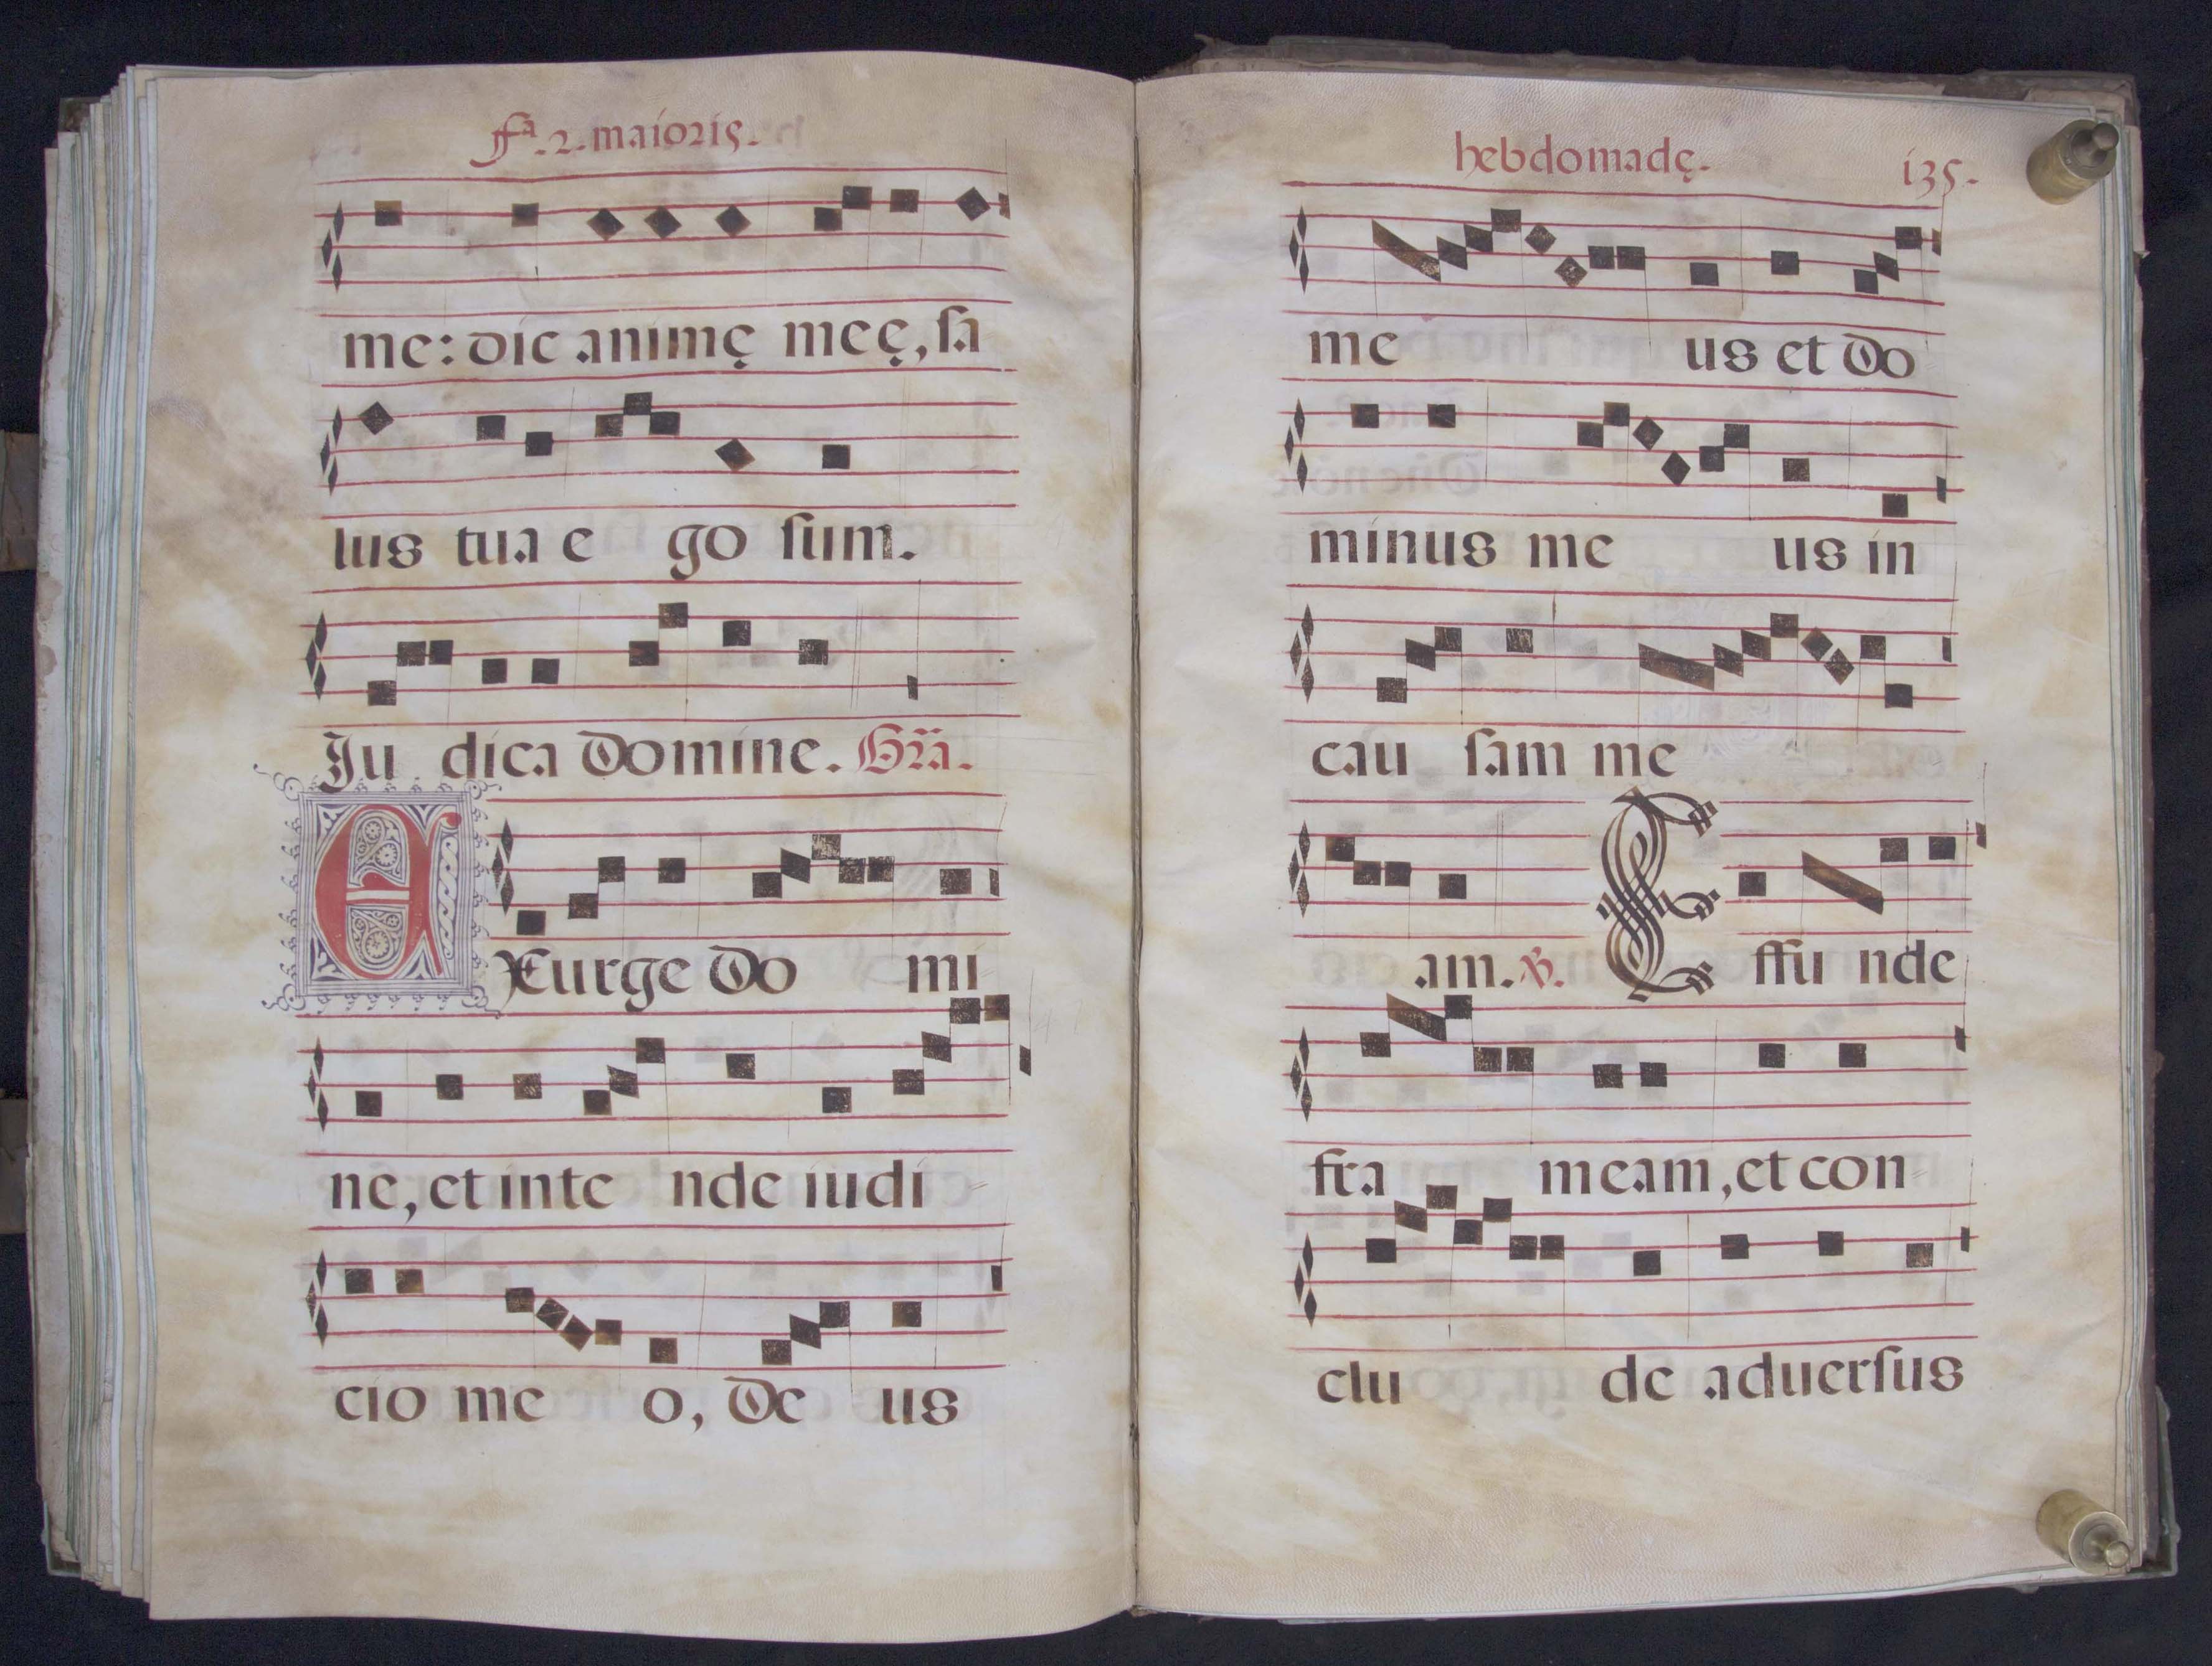 fᵃ.2.maioris.
me: dic animę meę, ſa
lus tua e go ſum.
Ju dica Domine. Gra.
EXurge Do mi
ne, et inte nde iudi
cio me o, De us
hebdomadę. 135.
me us et Do
minus me us in
cau ſam me
am. ℣. Effu nde
fra meam, et con
clu de aduerſus